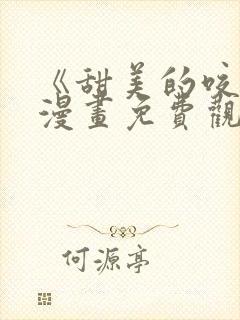 《甜美的咬
漫畫免費觀
何源亭